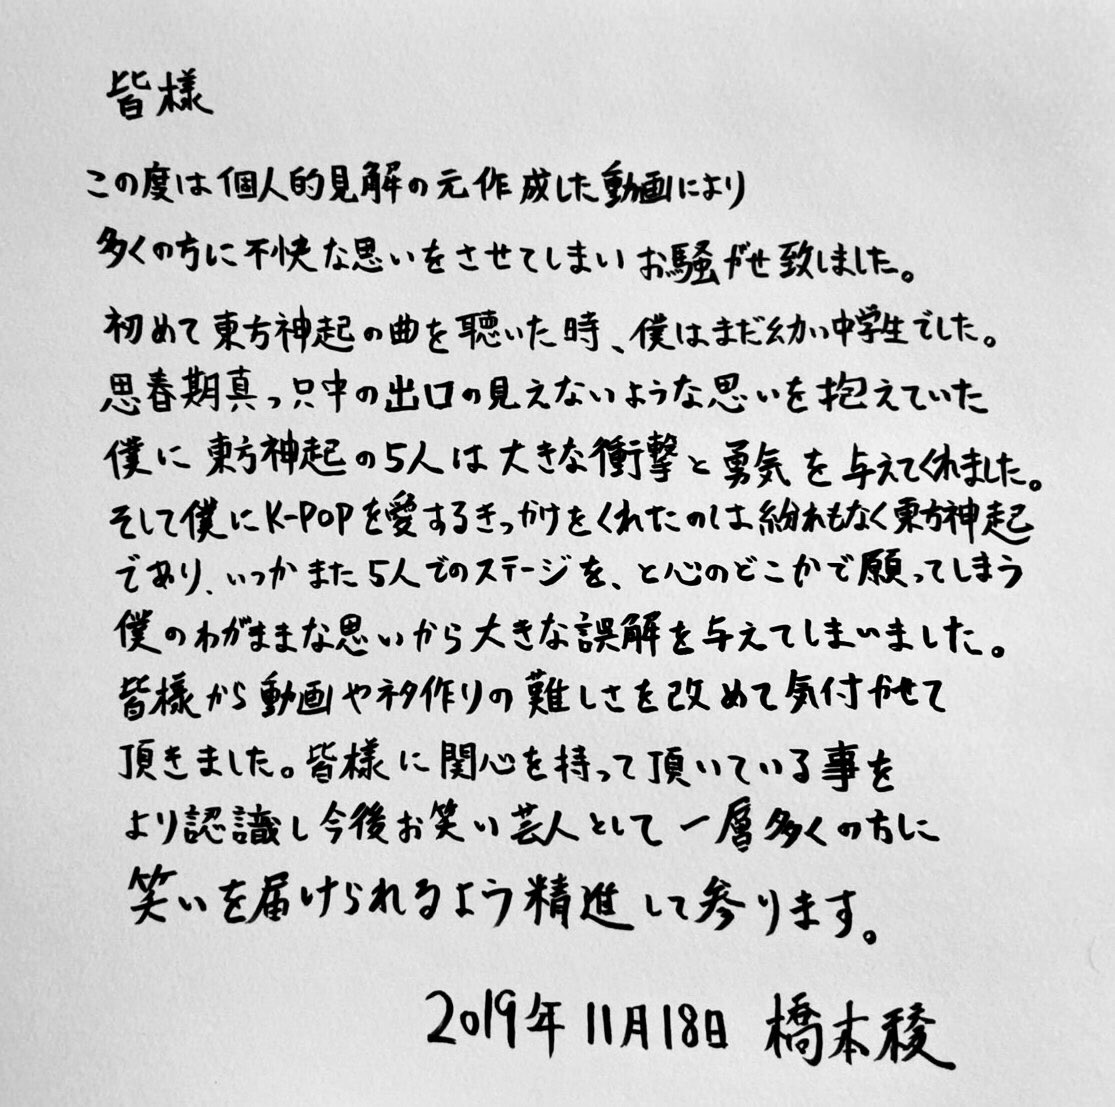 皆様
この度は個人的見解の元作成した動画により
多くの方に不快な思いをさせてしまいお騒がせ致しました。
初めて東方神起の曲を聴いた時、僕はまだ幼い中学生でした。
思春期真っ只中の出口の見えないような思いを抱えていた
僕に東方神起の5人は大きな衝撃と勇気を与えてくれました。
そして僕にK-POPを愛するきっかけをくれたのは紛れもなく東方神起
であり、いつかまた5人でのステージを、と心のどこかで願ってしまう
僕のわがままな思いから大きな誤解を与えてしまいました。
皆様から動画やネタ作りの難しさを改めて気付かせて
頂きました。皆様に関心を持って頂いている事を
より認識し今後お笑い芸人として一層多くの方に
笑いを届けられるよう精進して参ります。
2019年11月18日 橋本稜